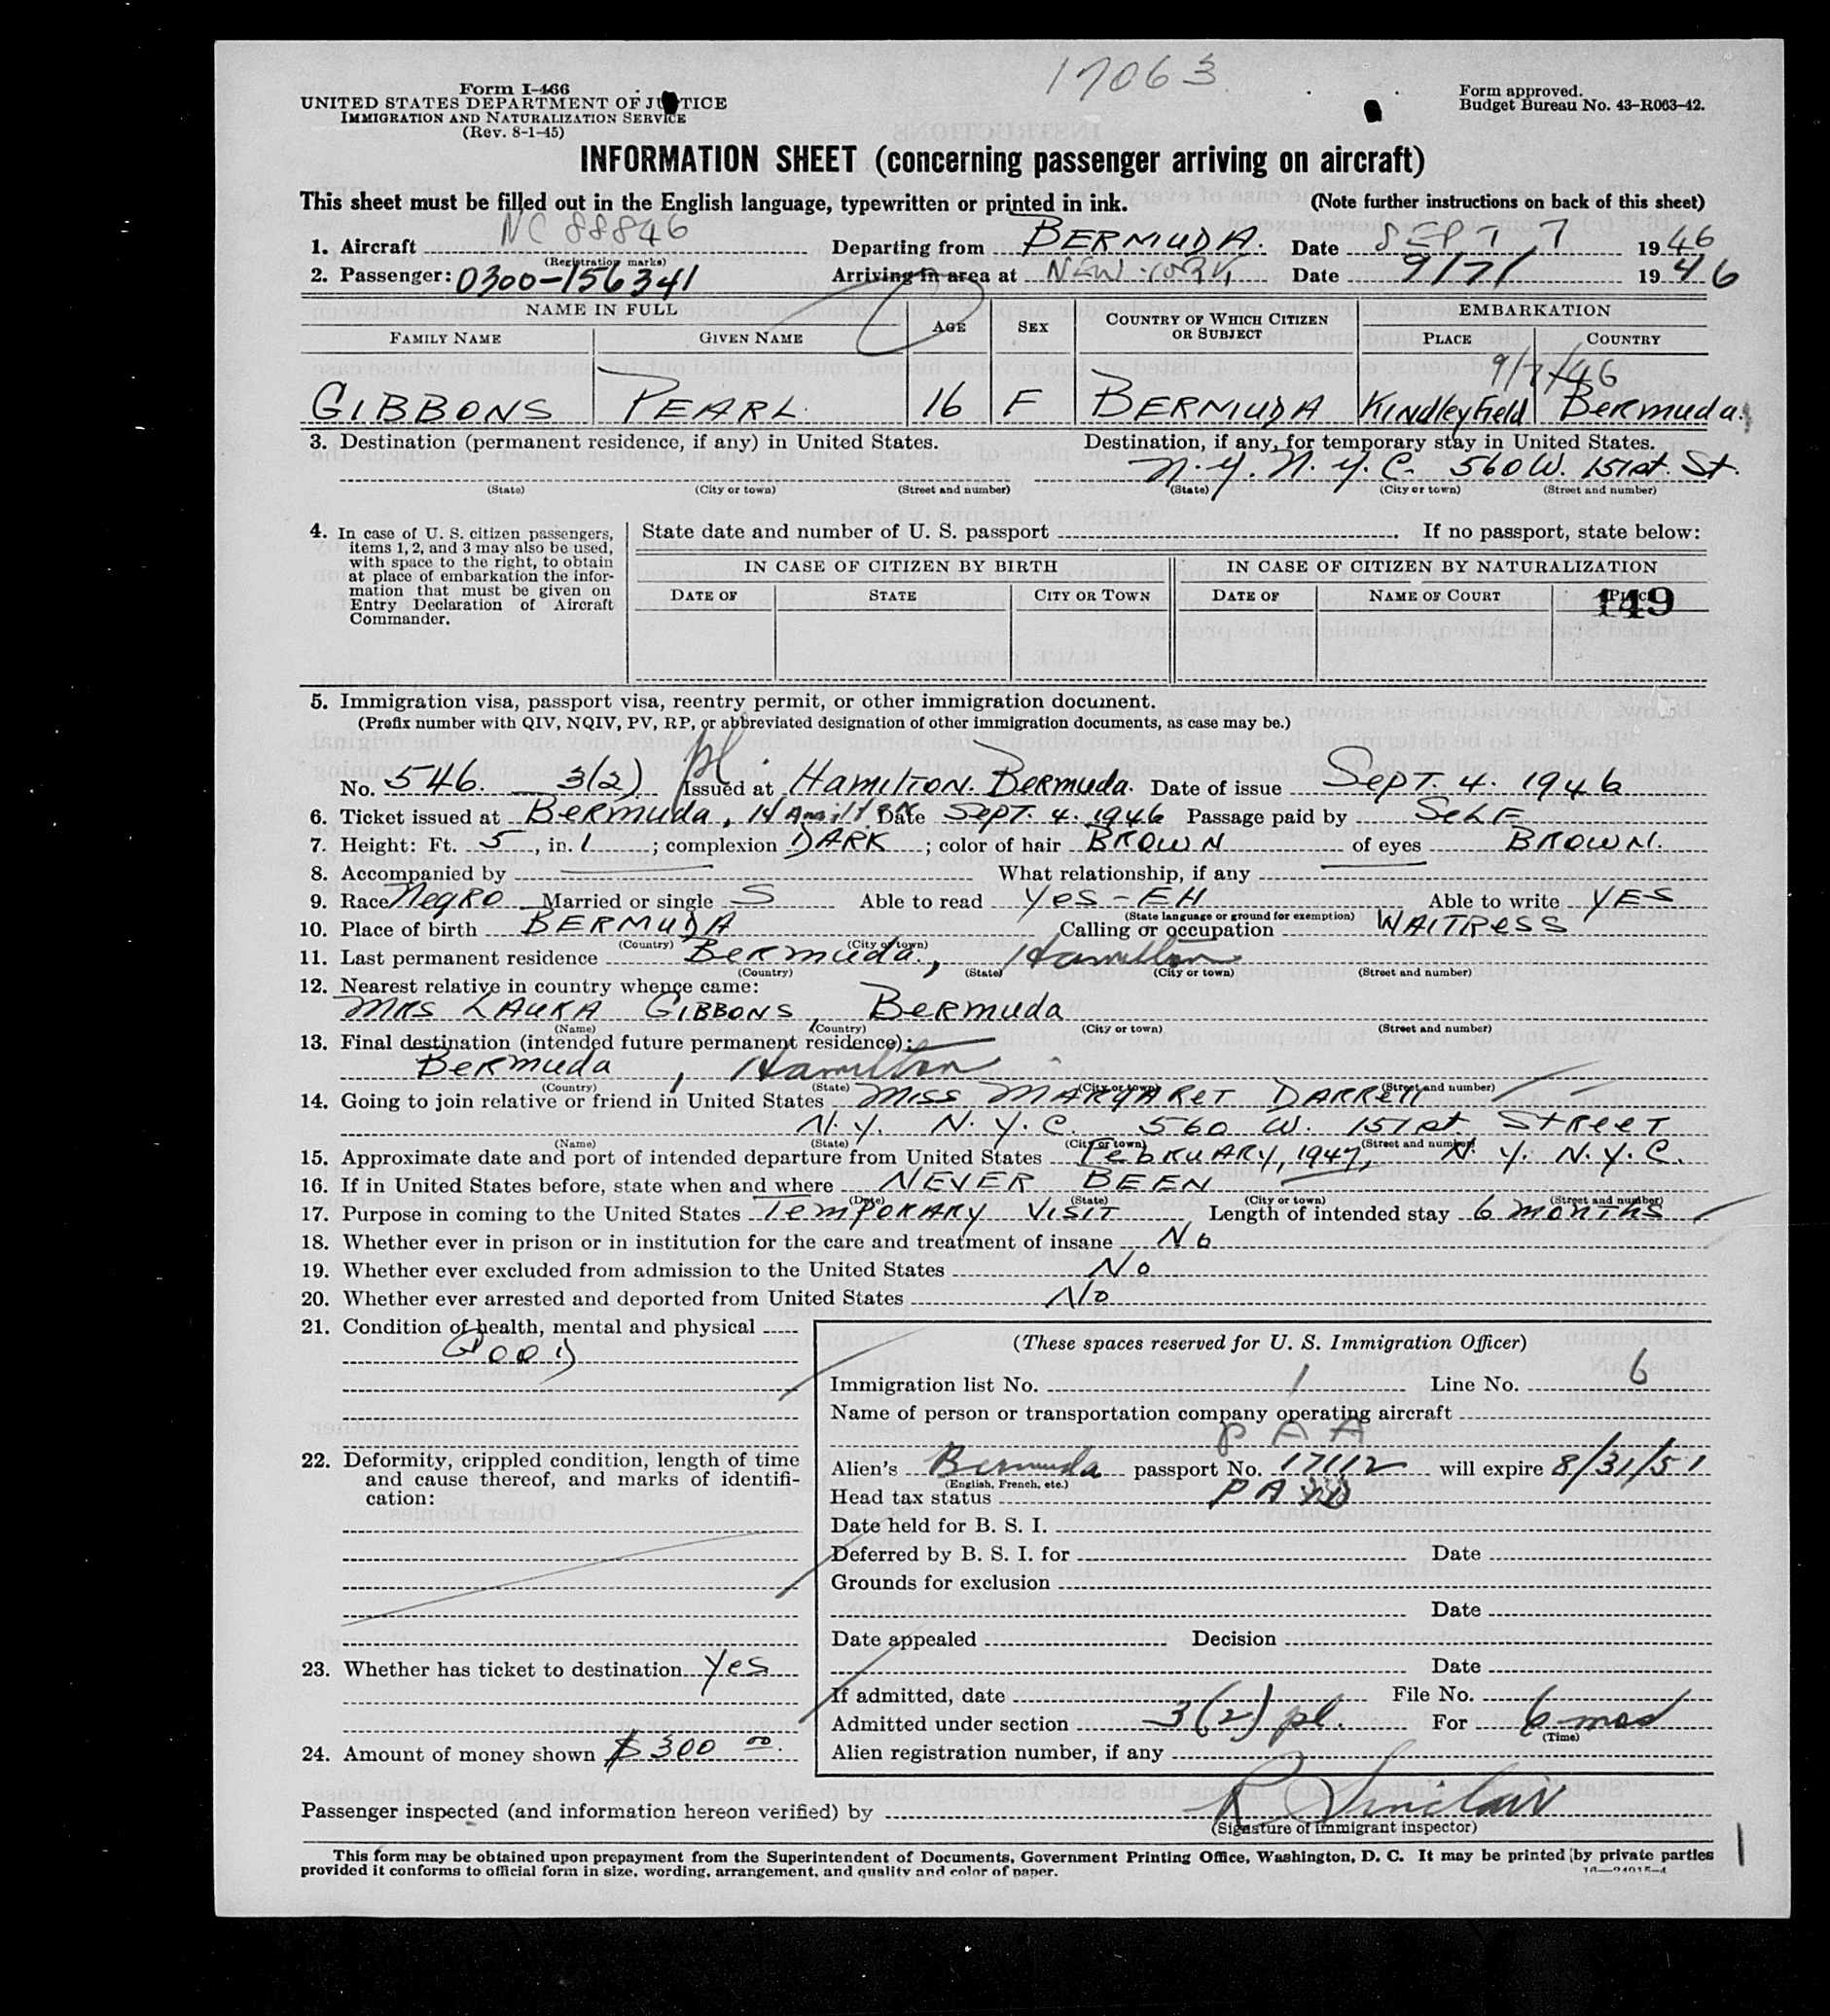 17063
Form I-466
UNITED STATES DEPARTMENT OF JUSTICE
IMMIGRATION AND NATURALIZATION SERVICE
(Rev. 8-1-45)
Form approved.
Budget Bureau No. 43-R063-42.
INFORMATION SHEET (concerning passenger arriving on aircraft)
This sheet must be filled out in the English language, typewritten or printed in ink. (Note further instructions on back of this sheet)
1. Aircraft NC 88846 Departing from BERMUDA. Date SEPT 7 1946
(Registration marks)
2. Passenger: 0300-156341 Arriving in area at NEW YORK Date 9/7/ 1946
NAME IN FULL AGE SEX COUNTRY OF WHICH CITIZEN OR SUBJECT EMBARKATION
FAMILY NAME GIVEN NAME PLACE COUNTRY
9/7/46
GIBBONS PEARL 16 F BERMUDA Kindleyfield Bermuda.
3. Destination (permanent residence, if any) in United States. Destination, if any, for temporary stay in United States.
N.Y. N.Y.C. 560 W. 151st. St.
(State) (City or town) (Street and number) (State) (City or town) (Street and number)
4. In case of U. S. citizen passengers, items 1, 2, and 3 may also be used, with space to the right, to obtain at place of embarkation the information that must be given on Entry Declaration of Aircraft Commander.
State date and number of U. S. passport . If no passport, state below:
IN CASE OF CITIZEN BY BIRTH IN CASE OF CITIZEN BY NATURALIZATION
DATE OF STATE CITY OR TOWN DATE OF NAME OF COURT PLACE
149
5. Immigration visa, passport visa, reentry permit, or other immigration document.
(Prefix number with QIV, NQIV, PV, RP, or abbreviated designation of other immigration documents, as case may be.)
No. 546. 3(2) pl. Issued at HAMILTON. Bermuda. Date of issue SEPT. 4. 1946
6. Ticket issued at Bermuda, Date SEPT. 4. 1946 Passage paid by SELF
7. Height: Ft. 5, in. 1; complexion DARK; color of hair BROWN of eyes BROWN.
8. Accompanied by What relationship, if any
9. Race Negro Married or single S Able to read Yes - EH Able to write YES
(State language or ground for exemption)
10. Place of birth BERMUDA Calling or occupation WAITRESS
(Country) (City or town)
11. Last permanent residence Bermuda, Hamilton
(Country) (State) (City or town) (Street and number)
12. Nearest relative in country whence came:
MRS LAURA GIBBONS, Bermuda
(Name) (Country) (City or town) (Street and number)
13. Final destination (intended future permanent residence):
Bermuda, Hamilton
(Country) (State) (City or town) (Street and number)
14. Going to join relative or friend in United States MISS MARGARET DARRELL
N.Y. N.Y.C. 560 W. 151st STREET
(Name) (State) (City or town) (Street and number)
15. Approximate date and port of intended departure from United States FebRUARY, 1947, N.Y. N.Y.C.
16. If in United States before, state when and where NEVER BEEN
(Date) (State) (City or town) (Street and number)
17. Purpose in coming to the United States TEMPORARY VISIT Length of intended stay 6 months
18. Whether ever in prison or in institution for the care and treatment of insane No
19. Whether ever excluded from admission to the United States No
20. Whether ever arrested and deported from United States No
21. Condition of health, mental and physical
Good
22. Deformity, crippled condition, length of time and cause thereof, and marks of identification:
23. Whether has ticket to destination Yes
24. Amount of money shown $300 00
(These spaces reserved for U. S. Immigration Officer)
Immigration list No. 1 Line No. 6
Name of person or transportation company operating aircraft
P A A
Alien's Bermuda passport No. 17112 will expire 8/31/51
(English, French, etc.)
Head tax status PAID
Date held for B. S. I.
Deferred by B. S. I. for Date
Grounds for exclusion
Date
Date appealed Decision
Date
If admitted, date File No.
Admitted under section 3(2) pl. For 6 mos
(Time)
Alien registration number, if any
Passenger inspected (and information hereon verified) by R Sinclair
(Signature of immigrant inspector)
This form may be obtained upon prepayment from the Superintendent of Documents, Government Printing Office, Washington, D. C. It may be printed by private parties
provided it conforms to official form in size, wording, arrangement, and quality and color of paper.